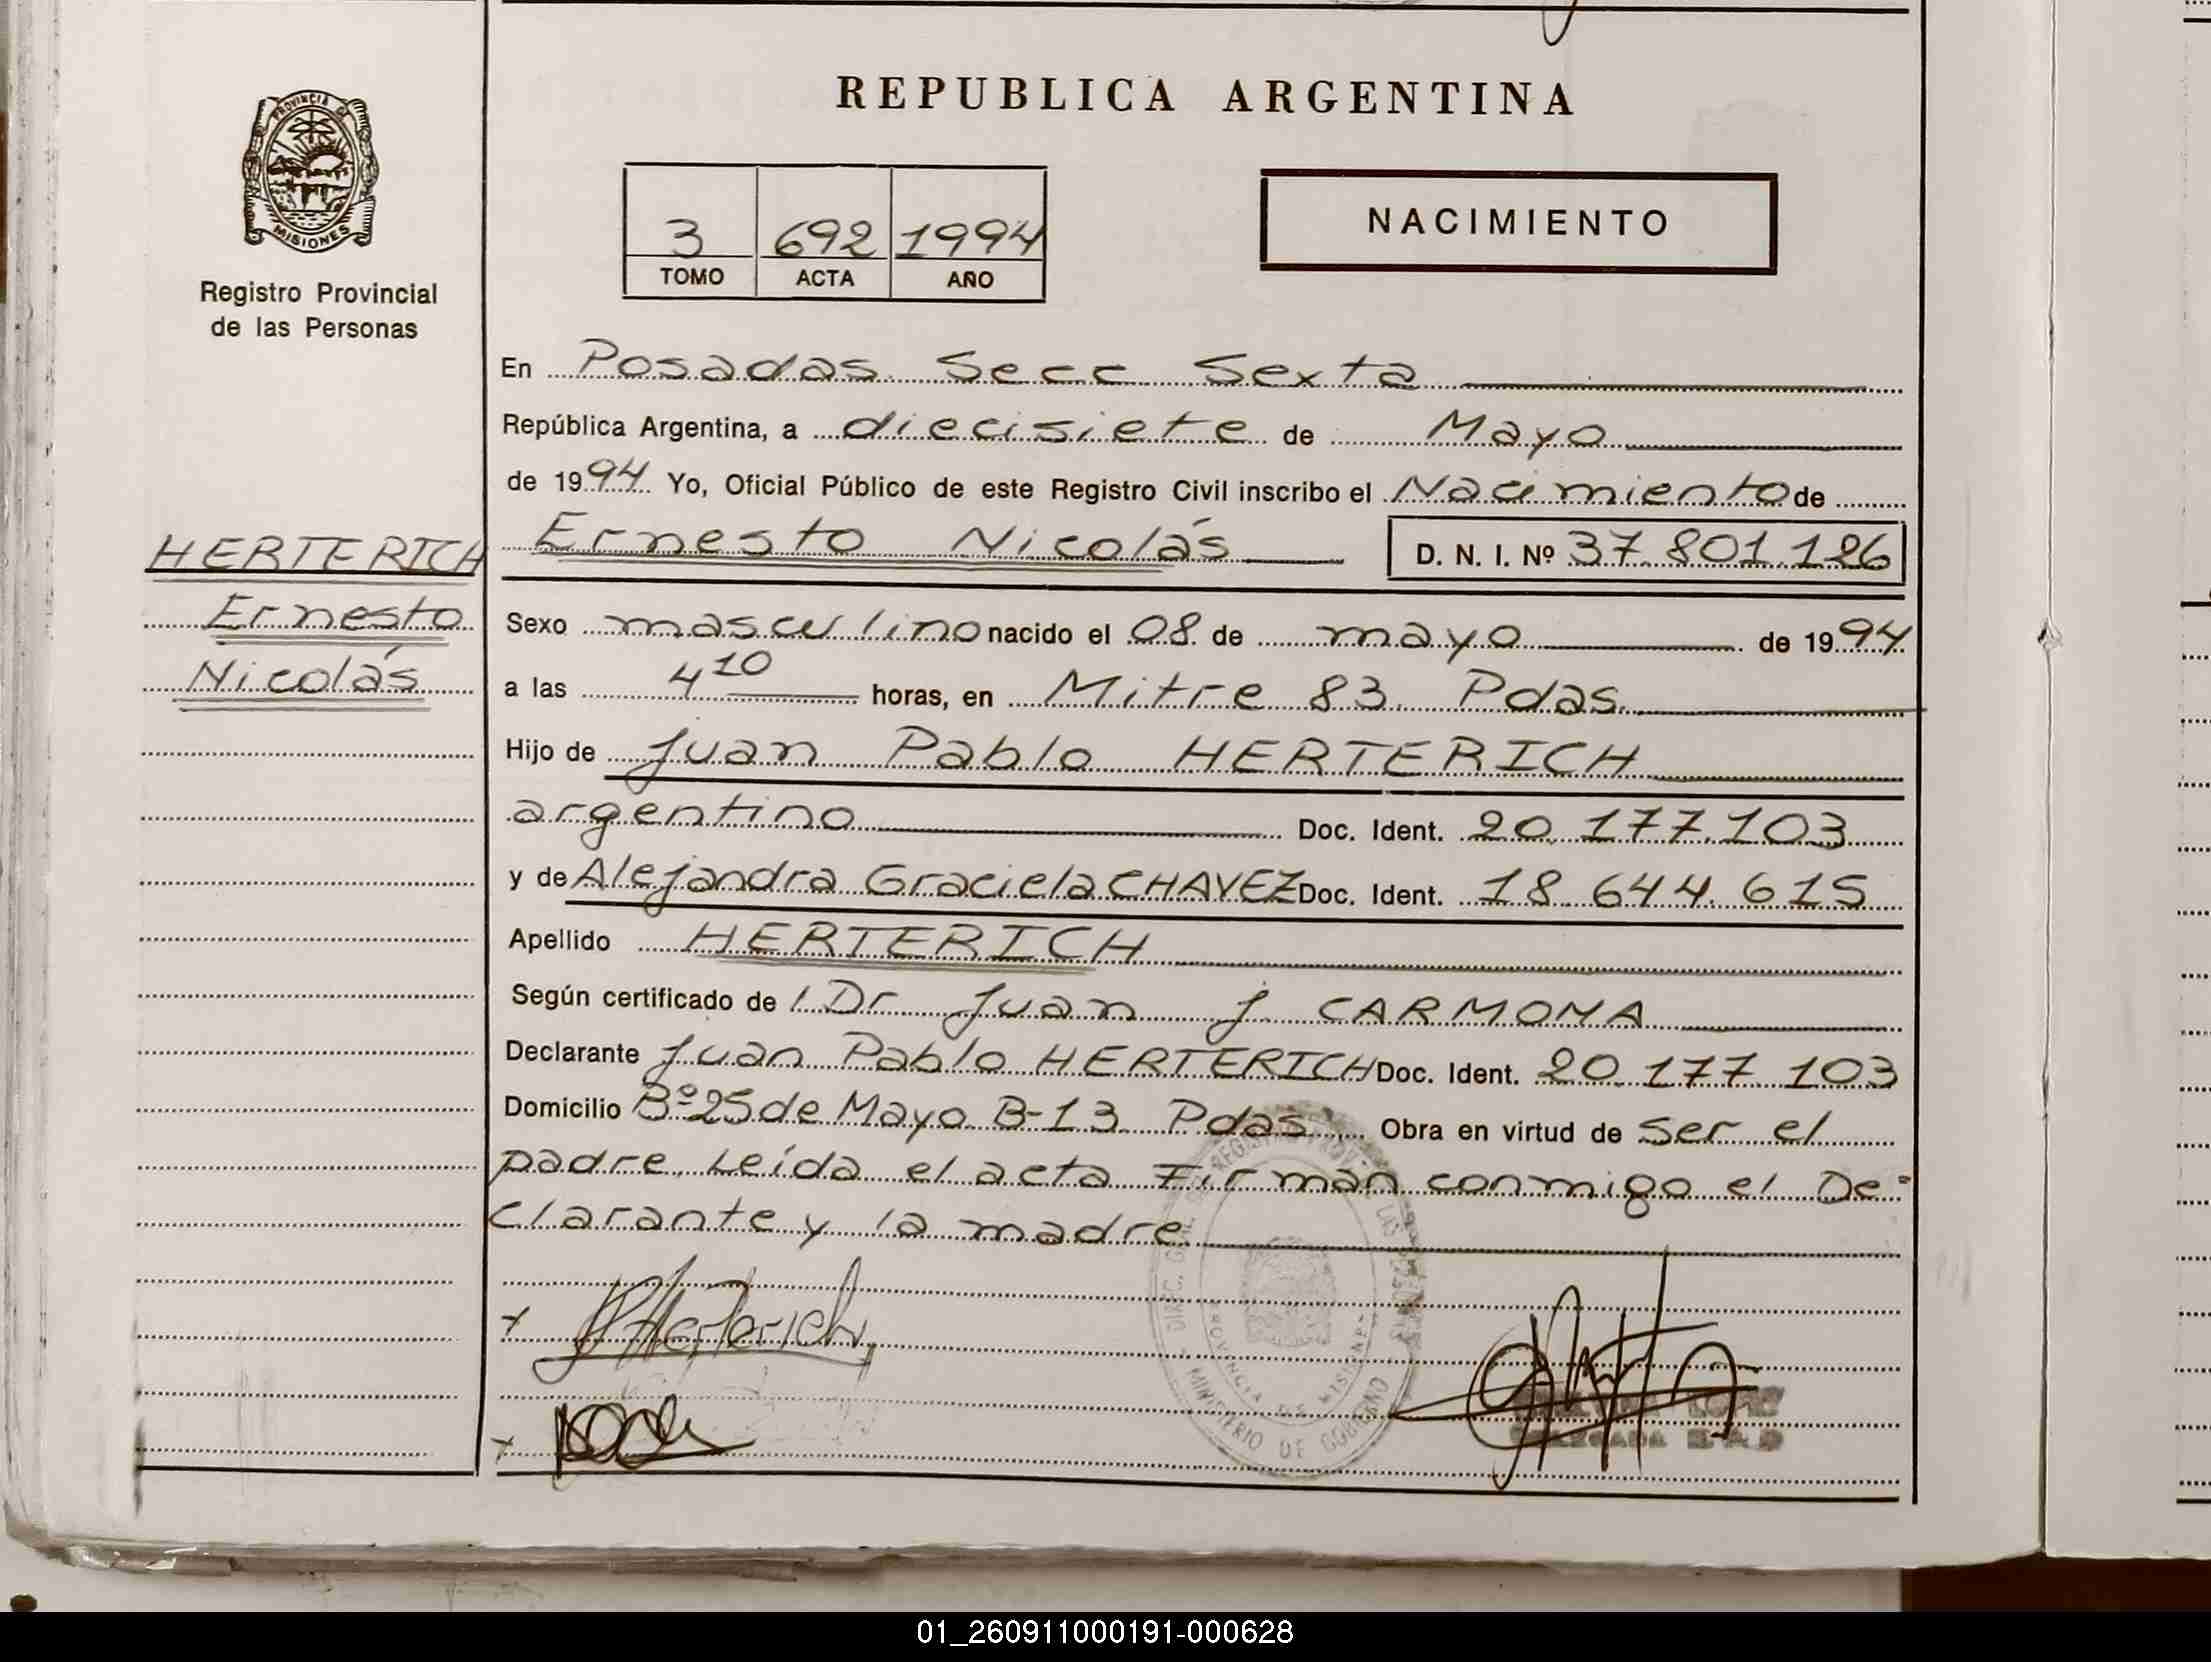 REPUBLICA ARGENTINA
PROVINCIA DE
MISIONES
Registro Provincial
de las Personas
3 692 1994
TOMO ACTA AÑO
NACIMIENTO
En Posadas Secc Sexta
República Argentina, a diecisiete de Mayo
de 1994 Yo, Oficial Público de este Registro Civil inscribo el Nacimiento de
HERTERICH
Ernesto
Nicolás
Ernesto Nicolás D. N. I. Nº 37.801.126
Sexo masculino nacido el 08 de mayo de 1994
a las 4 10 horas, en Mitre 83 Pdas.
Hijo de Juan Pablo HERTERICH
argentino Doc. Ident. 20.177.103
y de Alejandra Graciela CHAVEZ Doc. Ident. 18.644.615
Apellido HERTERICH
Según certificado de l Dr Juan J. CARMONA
Declarante Juan Pablo HERTERICH Doc. Ident. 20.177.103
Domicilio Bº 25 de Mayo B-13 Pdas Obra en virtud de ser el
padre. Leída el acta Firman conmigo el De-
clarante y la madre
Herterich
MINISTERIO DE GOBIERNO
PROVINCIA DE MISIONES
01_260911000191-000628